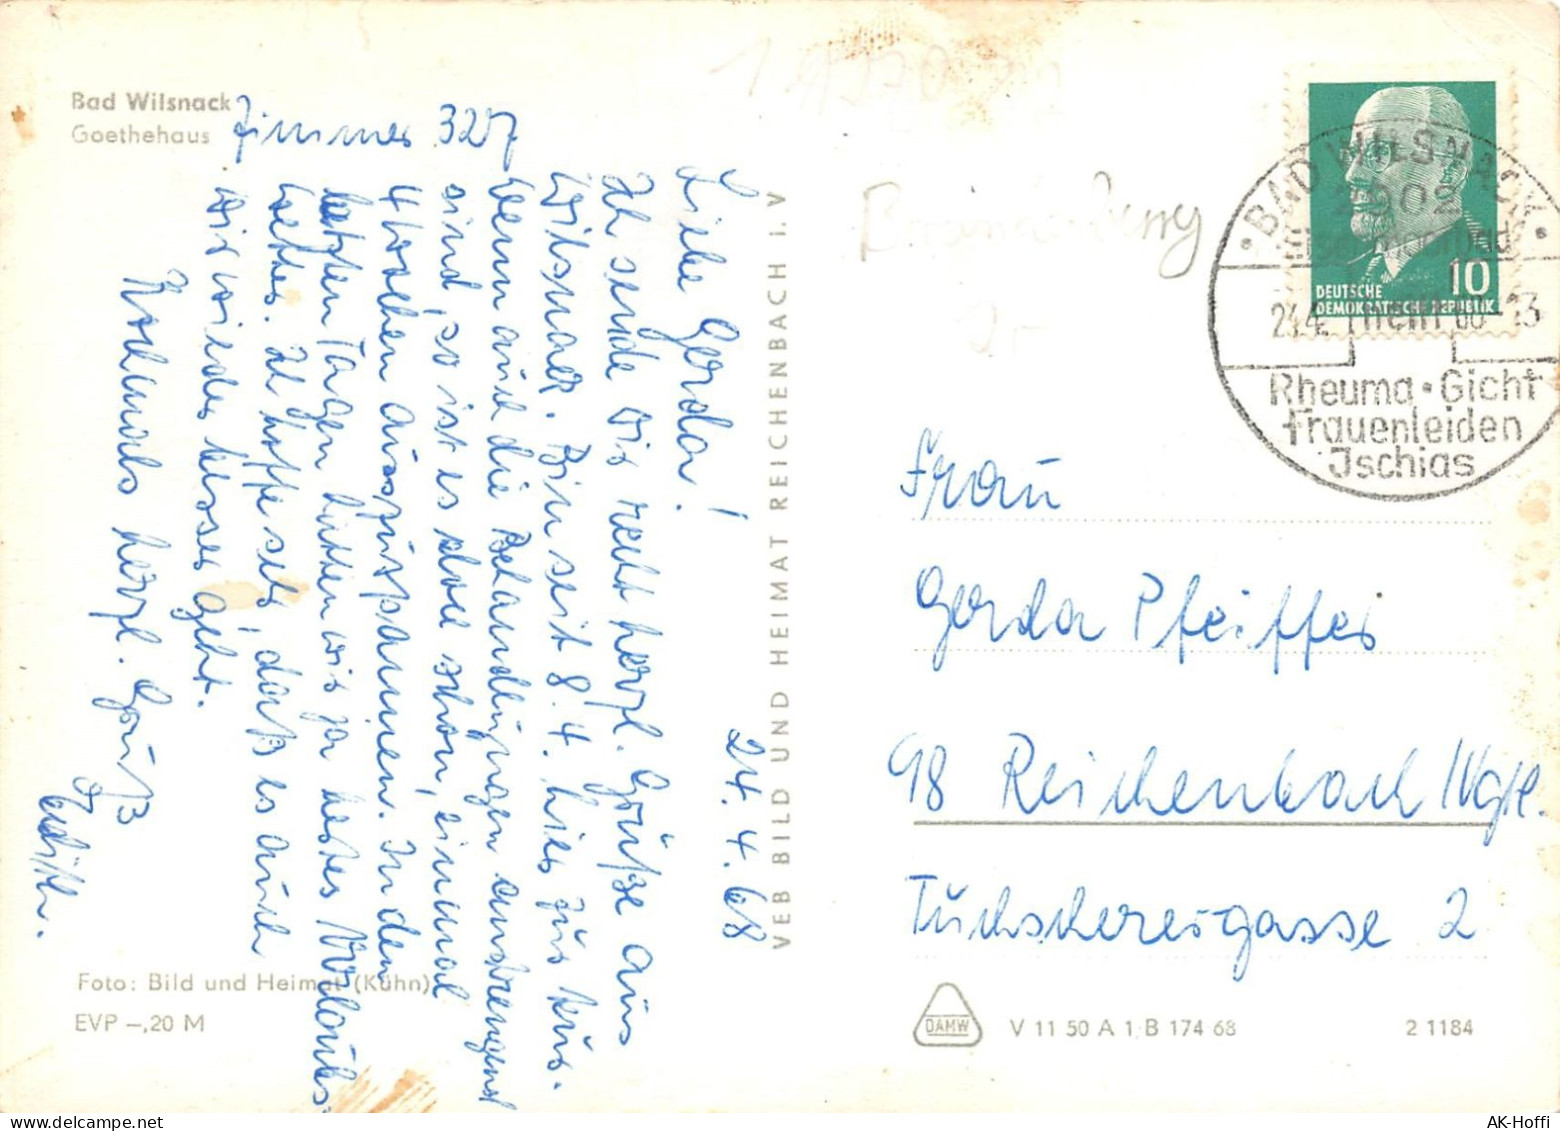 Bad Wilsnack
Goethehaus
Zimmer 327
24.4.68
Liebe Gerda!
Ich sende Dir recht herzl. Grüße aus
Wilsnack. Bin seit 8.4. hier zur Kur.
Wenn auch die Behandlungen anstrengend
sind, so ist es doch schon, einmal
4 Wochen auszuspannen. In den
letzten Tagen hatten wir ja bestes Urlaubs-
wetter. Ich hoffe sehr, daß es auch
Dir wieder besser geht.
Nochmals herzl. Gruß
Edith.
Foto: Bild und Heimat (Kühn)
EVP –,20 M
VEB BILD UND HEIMAT REICHENBACH I. V
Brandenburg
DEUTSCHE
DEMOKRATISCHE REPUBLIK
10
BAD WILSNACK
2902
heilt
Rheuma • Gicht
Frauenleiden
Ischias
Frau
Gerda Pfeiffer
98 Reichenbach /Vgtl.
Tuchscherergasse 2
DAMW
V 11 50 A 1 B 174 68
2 1184
AK-Hoffi